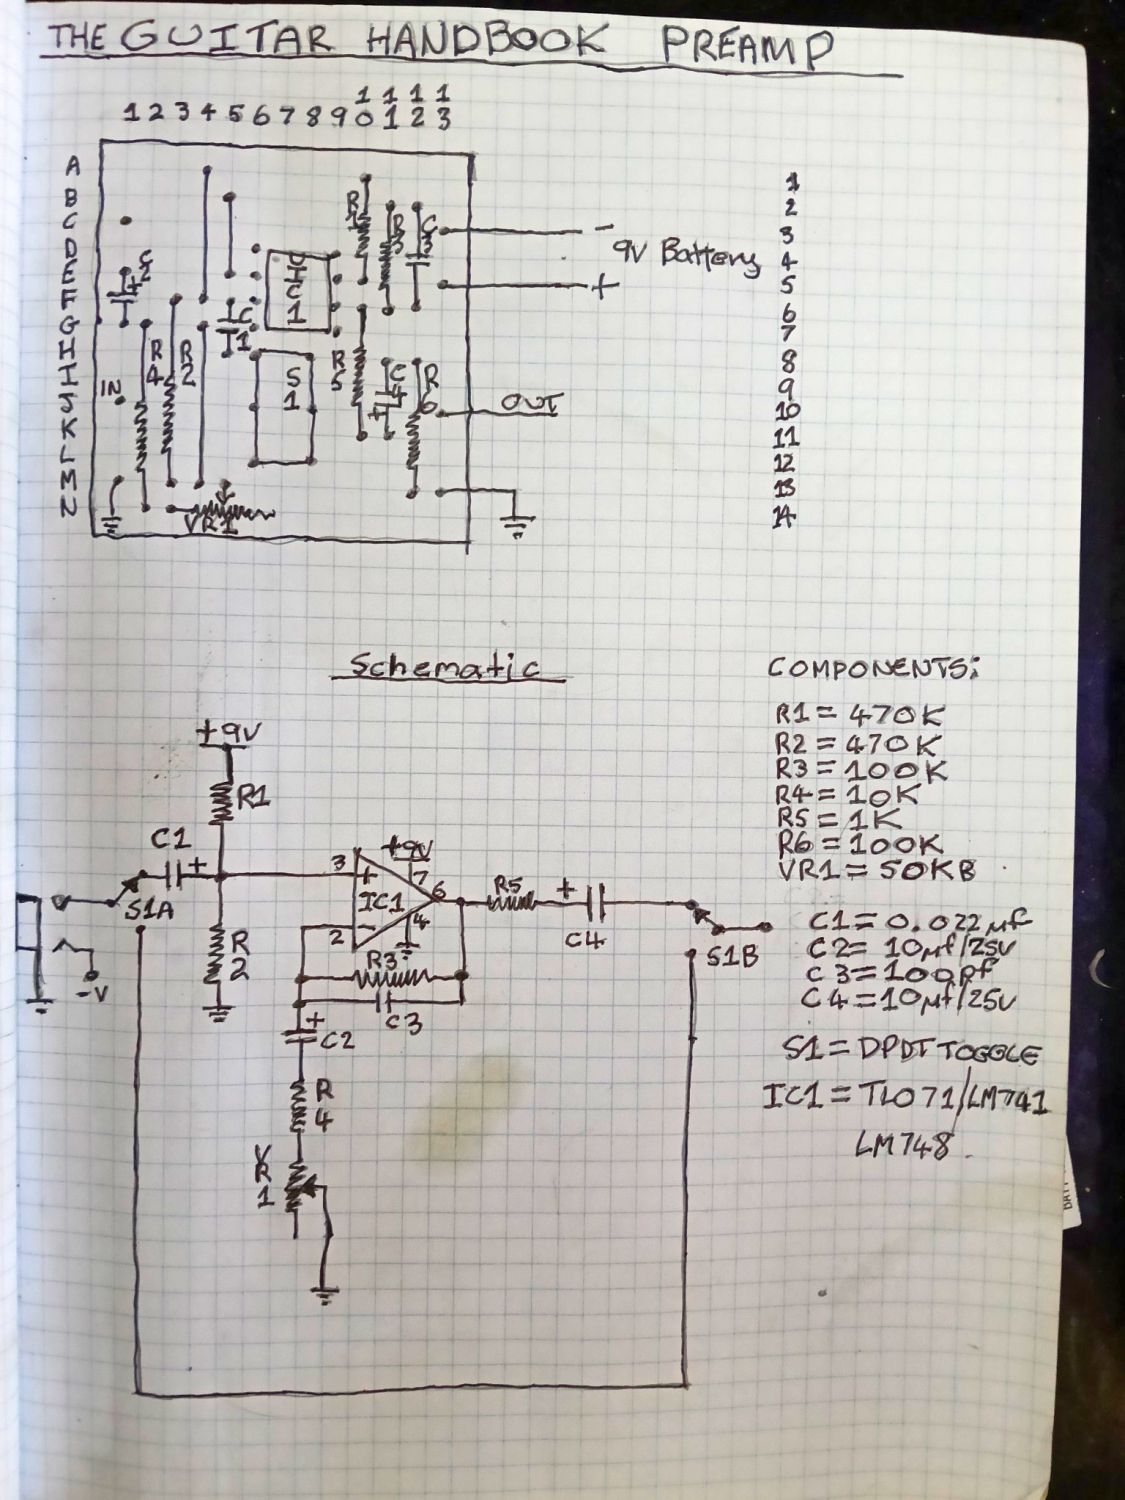 THE GUITAR HANDBOOK PREAMP
1 2 3 4 5 6 7 8 9 10 11 12 13
A
B
C
D
E
F
G
H
I
J
K
L
M
N
C2
+
R4
R2
C1
IC1
S1
R1
R3
C3
R5
C4
+
R6
IN
VR1
- 9V Battery
+
OUT
1
2
3
4
5
6
7
8
9
10
11
12
13
14
Schematic
+9V
R1
C1
+
S1A
-V
R2
3
+
+9V
7
IC1
6
4
2
-
R5
+
C4
S1B
R3
C3
+
C2
R4
VR1
COMPONENTS:
R1 = 470K
R2 = 470K
R3 = 100K
R4 = 10K
R5 = 1K
R6 = 100K
VR1 = 50KB
C1 = 0.022µf
C2 = 10µf/25v
C3 = 100pf
C4 = 10µf/25v
S1 = DPDT TOGGLE
IC1 = TL071/LM741
LM748